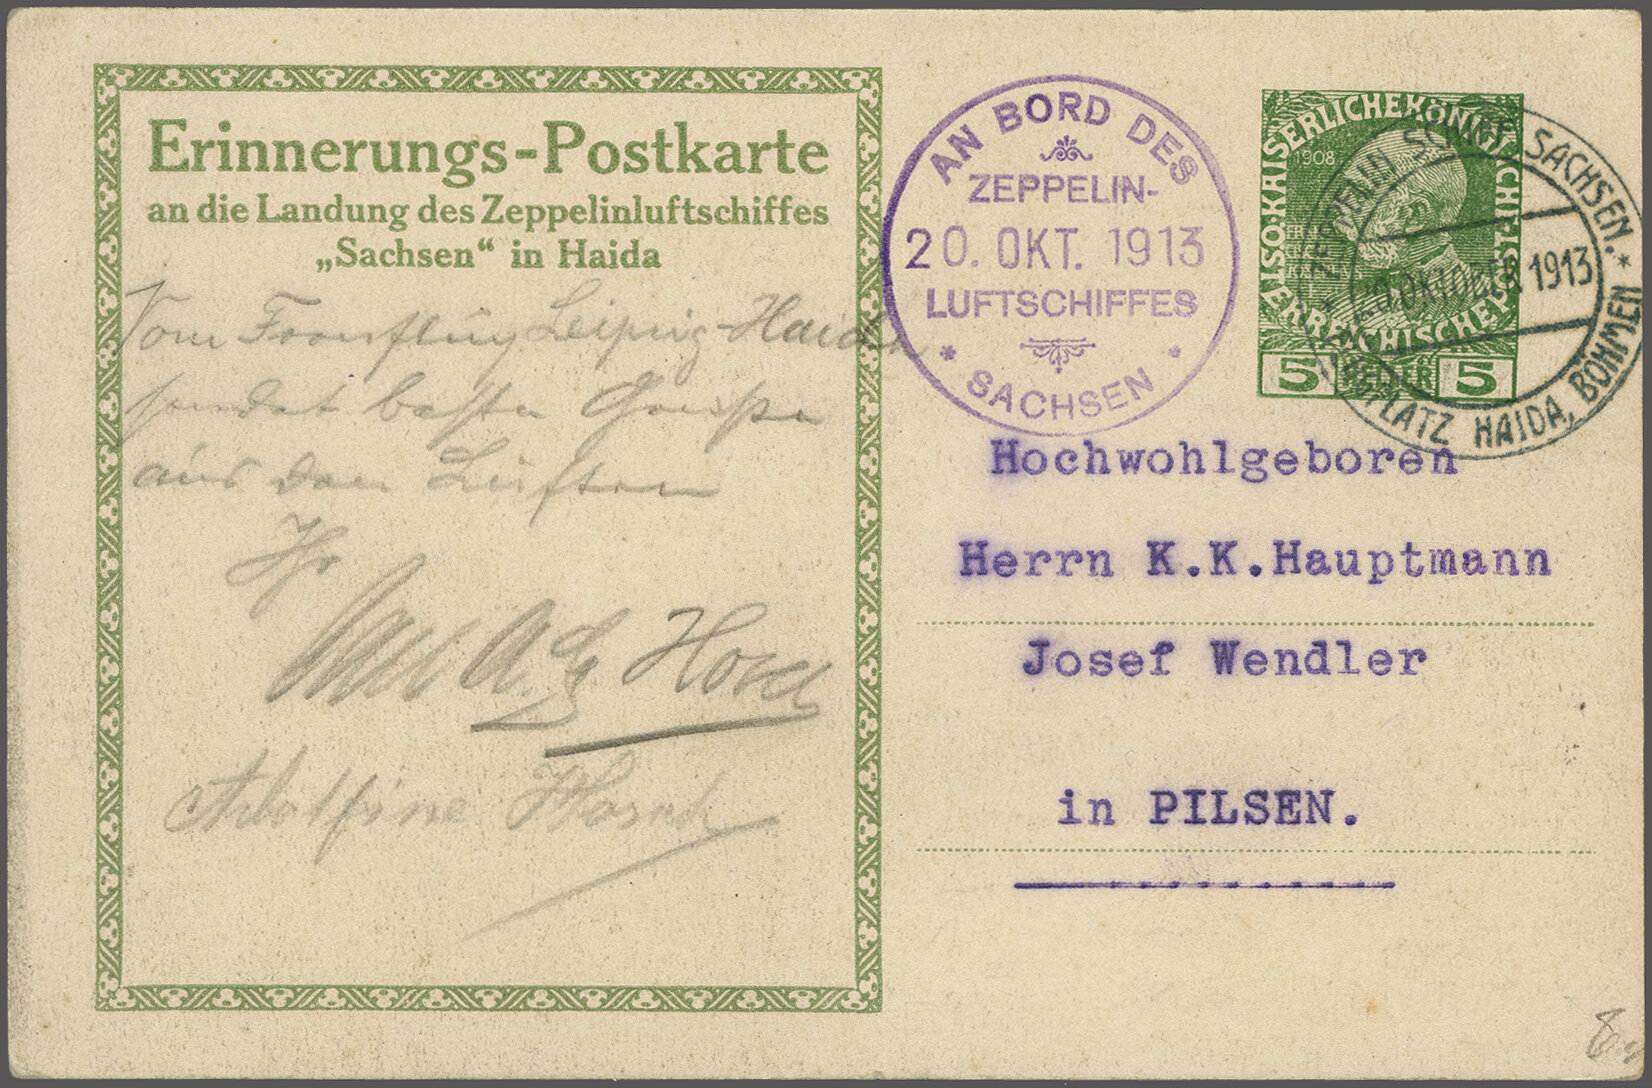 Erinnerungs-Postkarte
an die Landung des Zeppelinluftschiffes
„Sachsen“ in Haida
Vom Fernflug Leipzig-Haida
sendet beste Grüße
aus den Lüften
Adolfine
AN BORD DES
ZEPPELIN-
20. OKT. 1913
LUFTSCHIFFES
* SACHSEN *
KAISERLICHE KÖNIGLICHE ÖSTERREICHISCHE POST
1908
5 HELLER 5
SACHSEN. *
OKTOBER 1913
PLATZ HAIDA, BÖHMEN
Hochwohlgeboren
Herrn K.K.Hauptmann
Josef Wendler
in PILSEN.